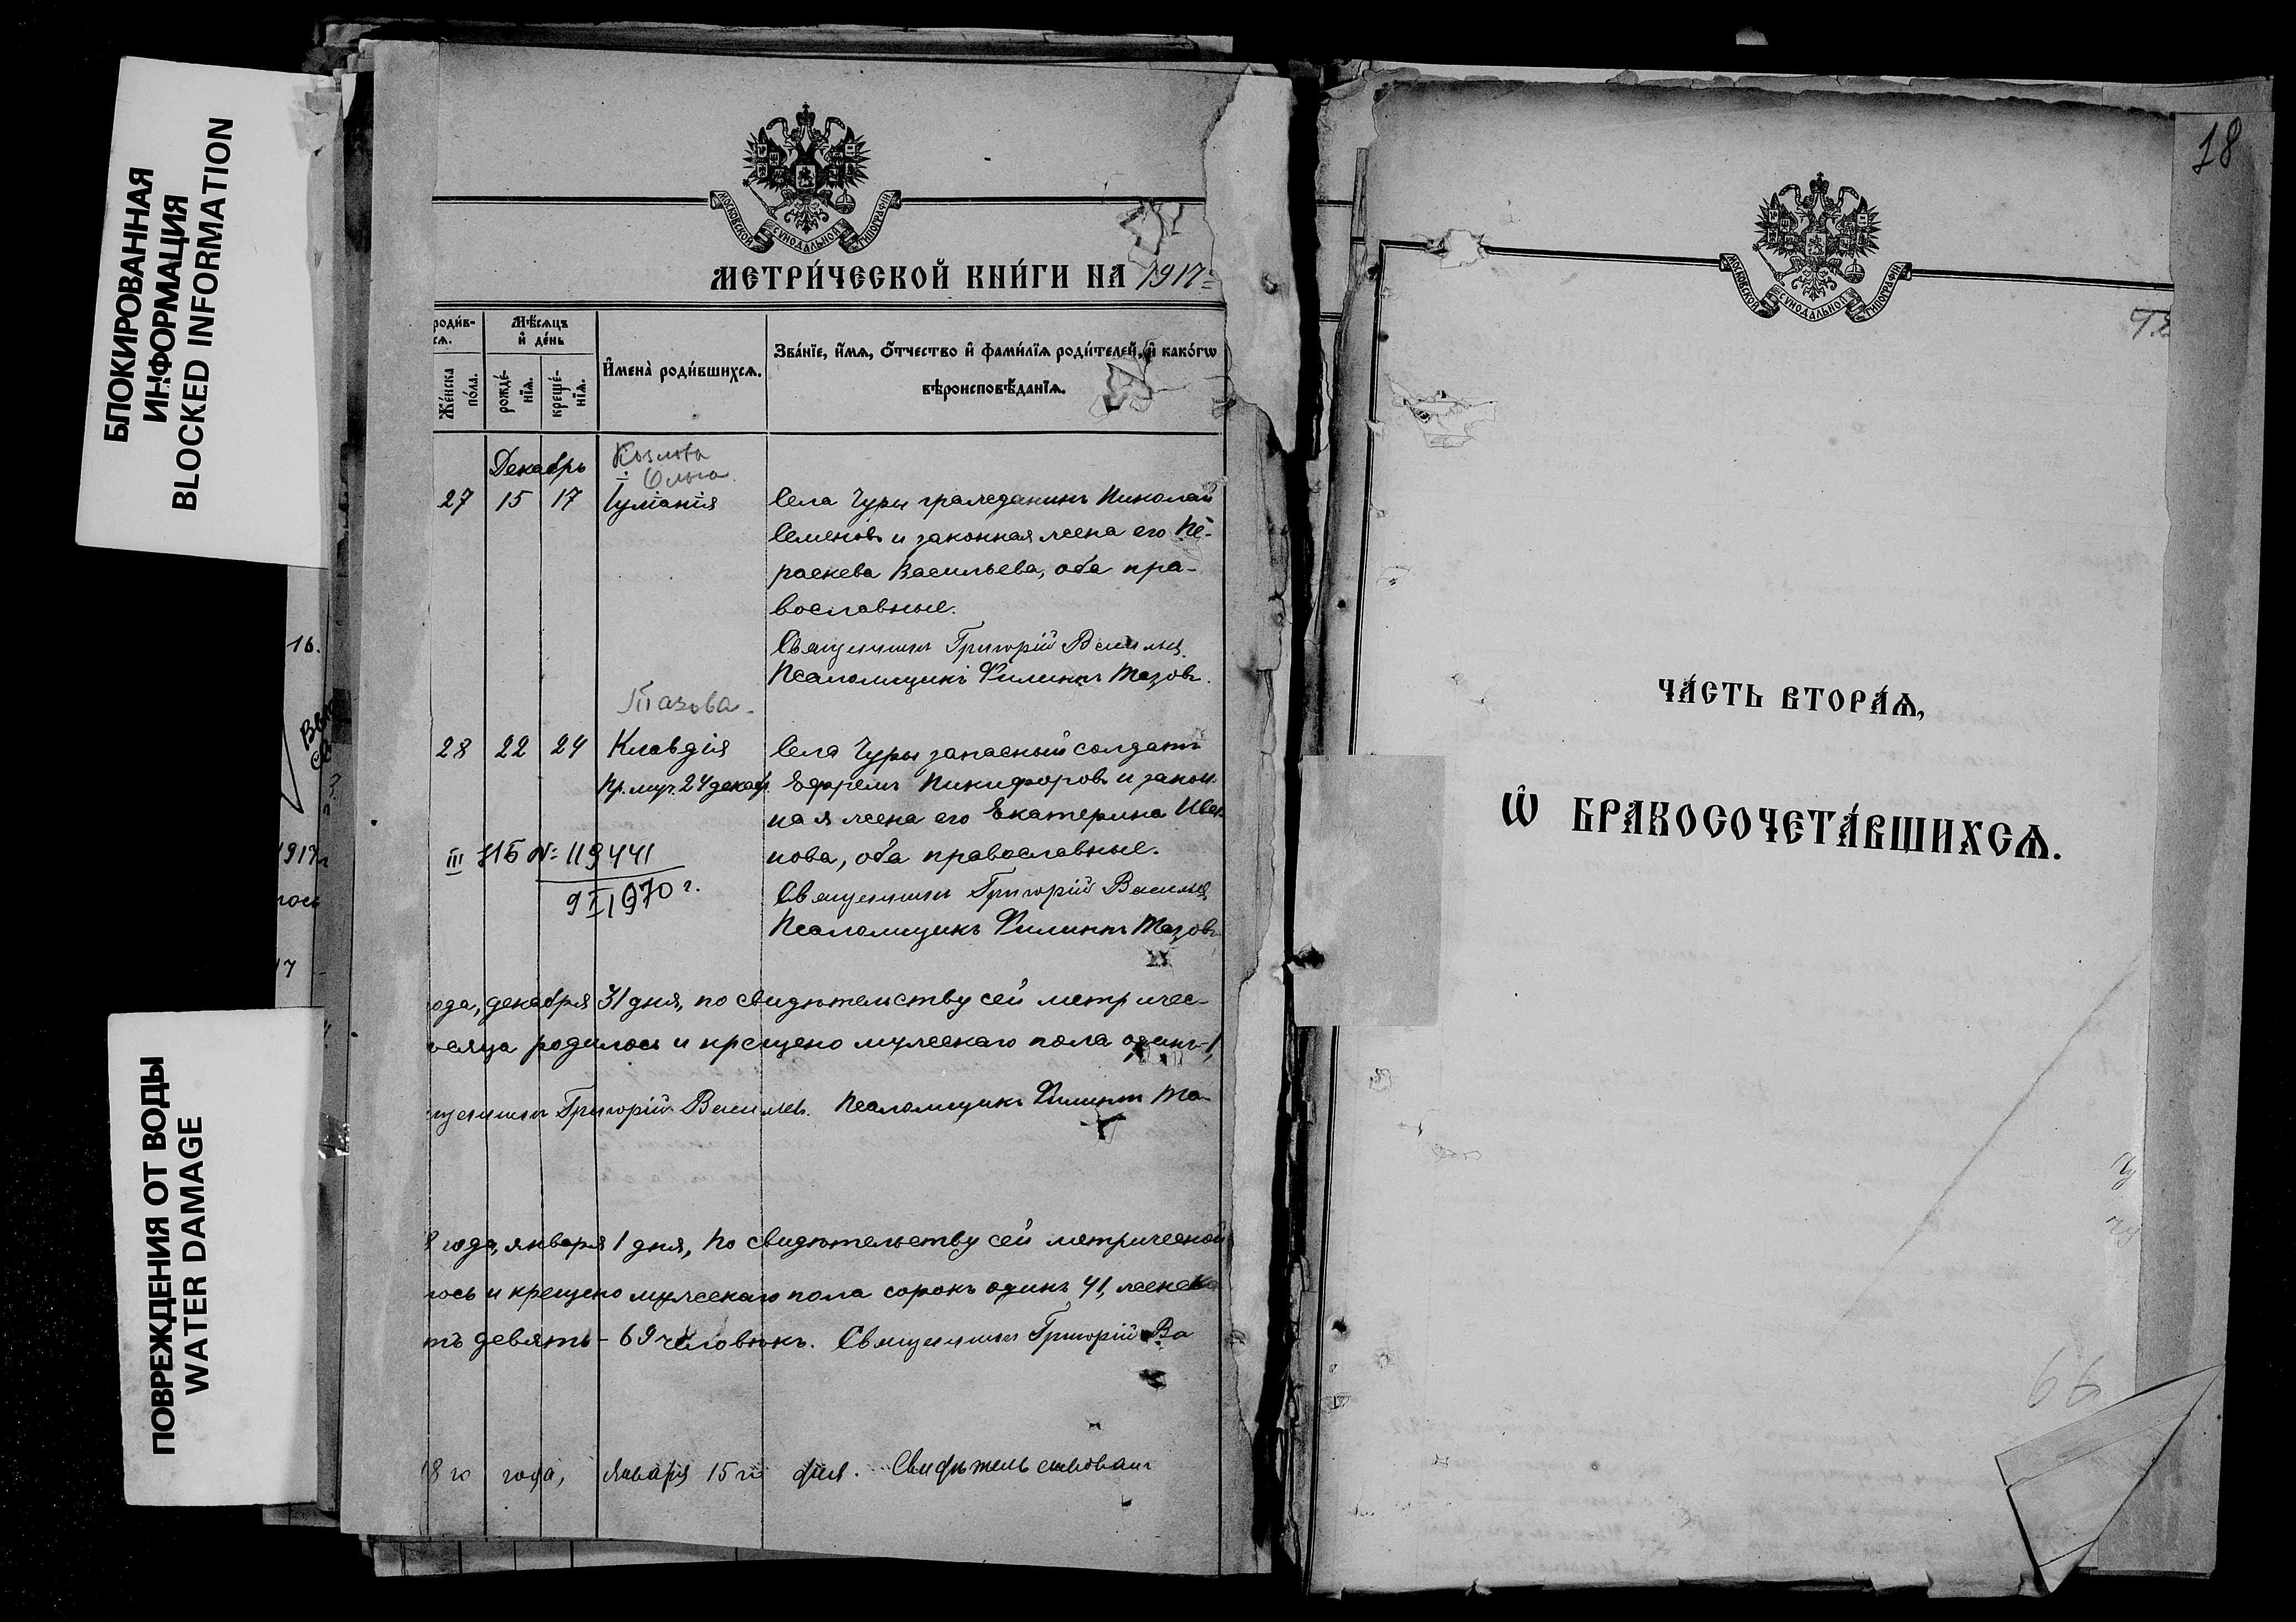 БЛОКИРОВАННАЯ
ИНФОРМАЦИЯ
BLOCKED INFORMATION
ПОВРЕЖДЕНИЯ ОТ ВОДЫ
WATER DAMAGE
16.
МОСКОВСКОЙ СѴНОДАЛЬНОЙ ТИПОГРАФІИ
МЕТРИ́ЧЕСКОЙ КНИ́ГИ НА 1917
роди́в-
сѧ.
Же́нска по́ла.
Мѣ́сяцъ и де́нь
рожде́-нїѧ.
креще́-нїѧ.
Имена̀ роди́вшихсѧ.
Зва́нїе, и́мѧ, о́тчество и фами́лїѧ роди́телей, и како́гѡ
вѣроисповѣ́данїѧ.
Декабрь
Козлова
Ольга
27 15 17 Іуліанія
Села Чуры гражданинъ Николай
Семеновъ и законная жена его Па-
раскева Васильева, оба пра-
вославные.
Священникъ Григорій Васильев
Псаломщикъ Филиппъ Тазовъ.
Тазова
28 22 24 Клавдія
Пр. муч. 24 декаб.
Села Чуры запасный солдатъ
Ефремъ Никифоровъ и закон
ная жена его Екатерина Ива
нова, оба православные.
III ЯБ № 119441
9 I 1970 г.
Священникъ Григорій Васильев
Псаломщикъ Филиппъ Тазовъ
ода, декабря 31 дня, по свидѣтельству сей метричес-
ѣсяца родилось и крещено мужескаго пола одинъ-1,
щенникъ Григорій Васильев. Псаломщикъ Филиппъ Та
8 года, января 1 дня, по свидѣтельству сей метрической
лось и крещено мужескаго пола сорокъ одинъ 41, женска
тъ девять - 69 человѣкъ. Священникъ Григорій Ва
18 го года, января 15 го дня. Свидѣтельствовалъ
18
МОСКОВСКОЙ СѴНОДАЛЬНОЙ ТИПОГРАФІИ
ЧА́СТЬ ВТОРА́Ѧ,
Ѡ БРАКОСОЧЕТА́ВШИХСѦ.
66